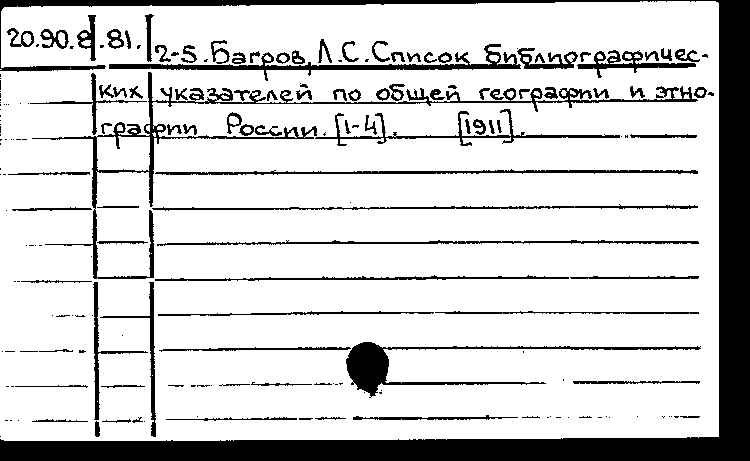 20.90.8.81. 2-5. Багров, Л.С. Список библиографичес-
ких указателей по общей географии и этно-
графии России. [1-4]. [1911].